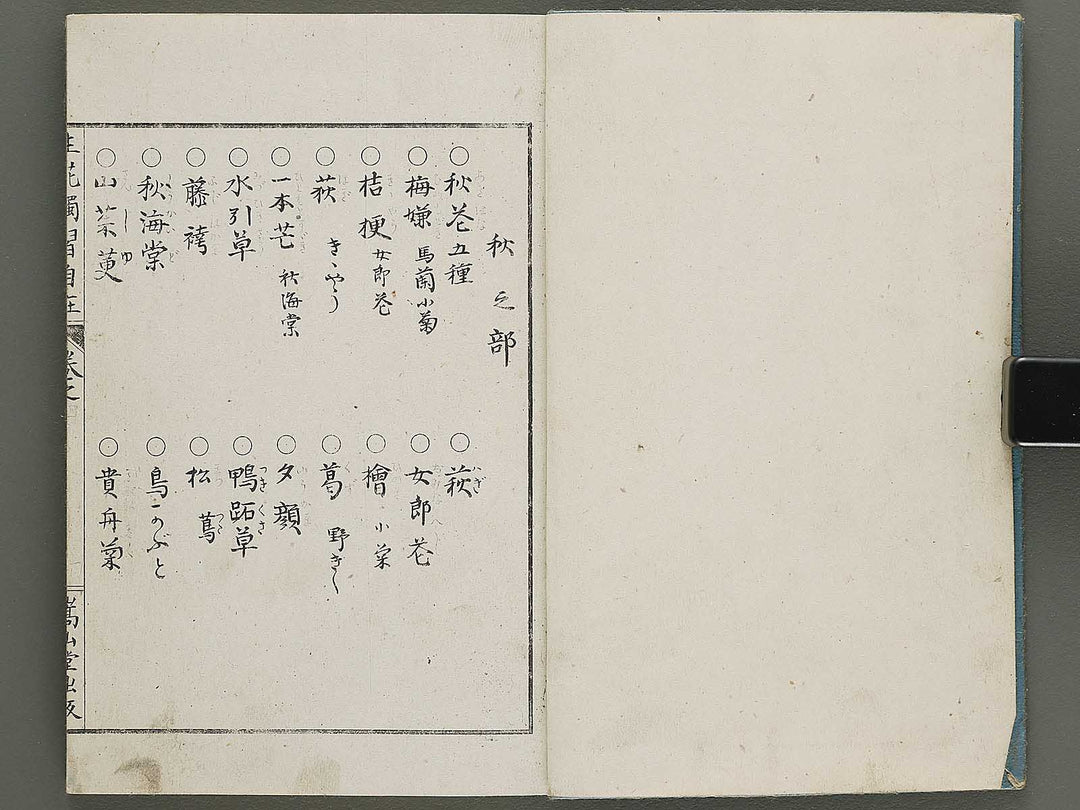 秋之部
○秋花五種
○梅嫌 馬藺小菊
○桔梗 女郎花
○荻 きゝやう
○一本芒 秋海棠
○水引草
○藤袴
○秋海棠
○山茱萸
○萩
○女郎花
○檜 小菊
○葛 野きく
○夕顔
○鴨跖草
○松 蔦
○鳥かぶと
○貴舟菊
生花獨習自在
巻之
嵩山堂出版